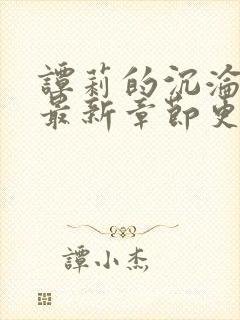 譚莉的沉淪
最新章節更
譚小杰